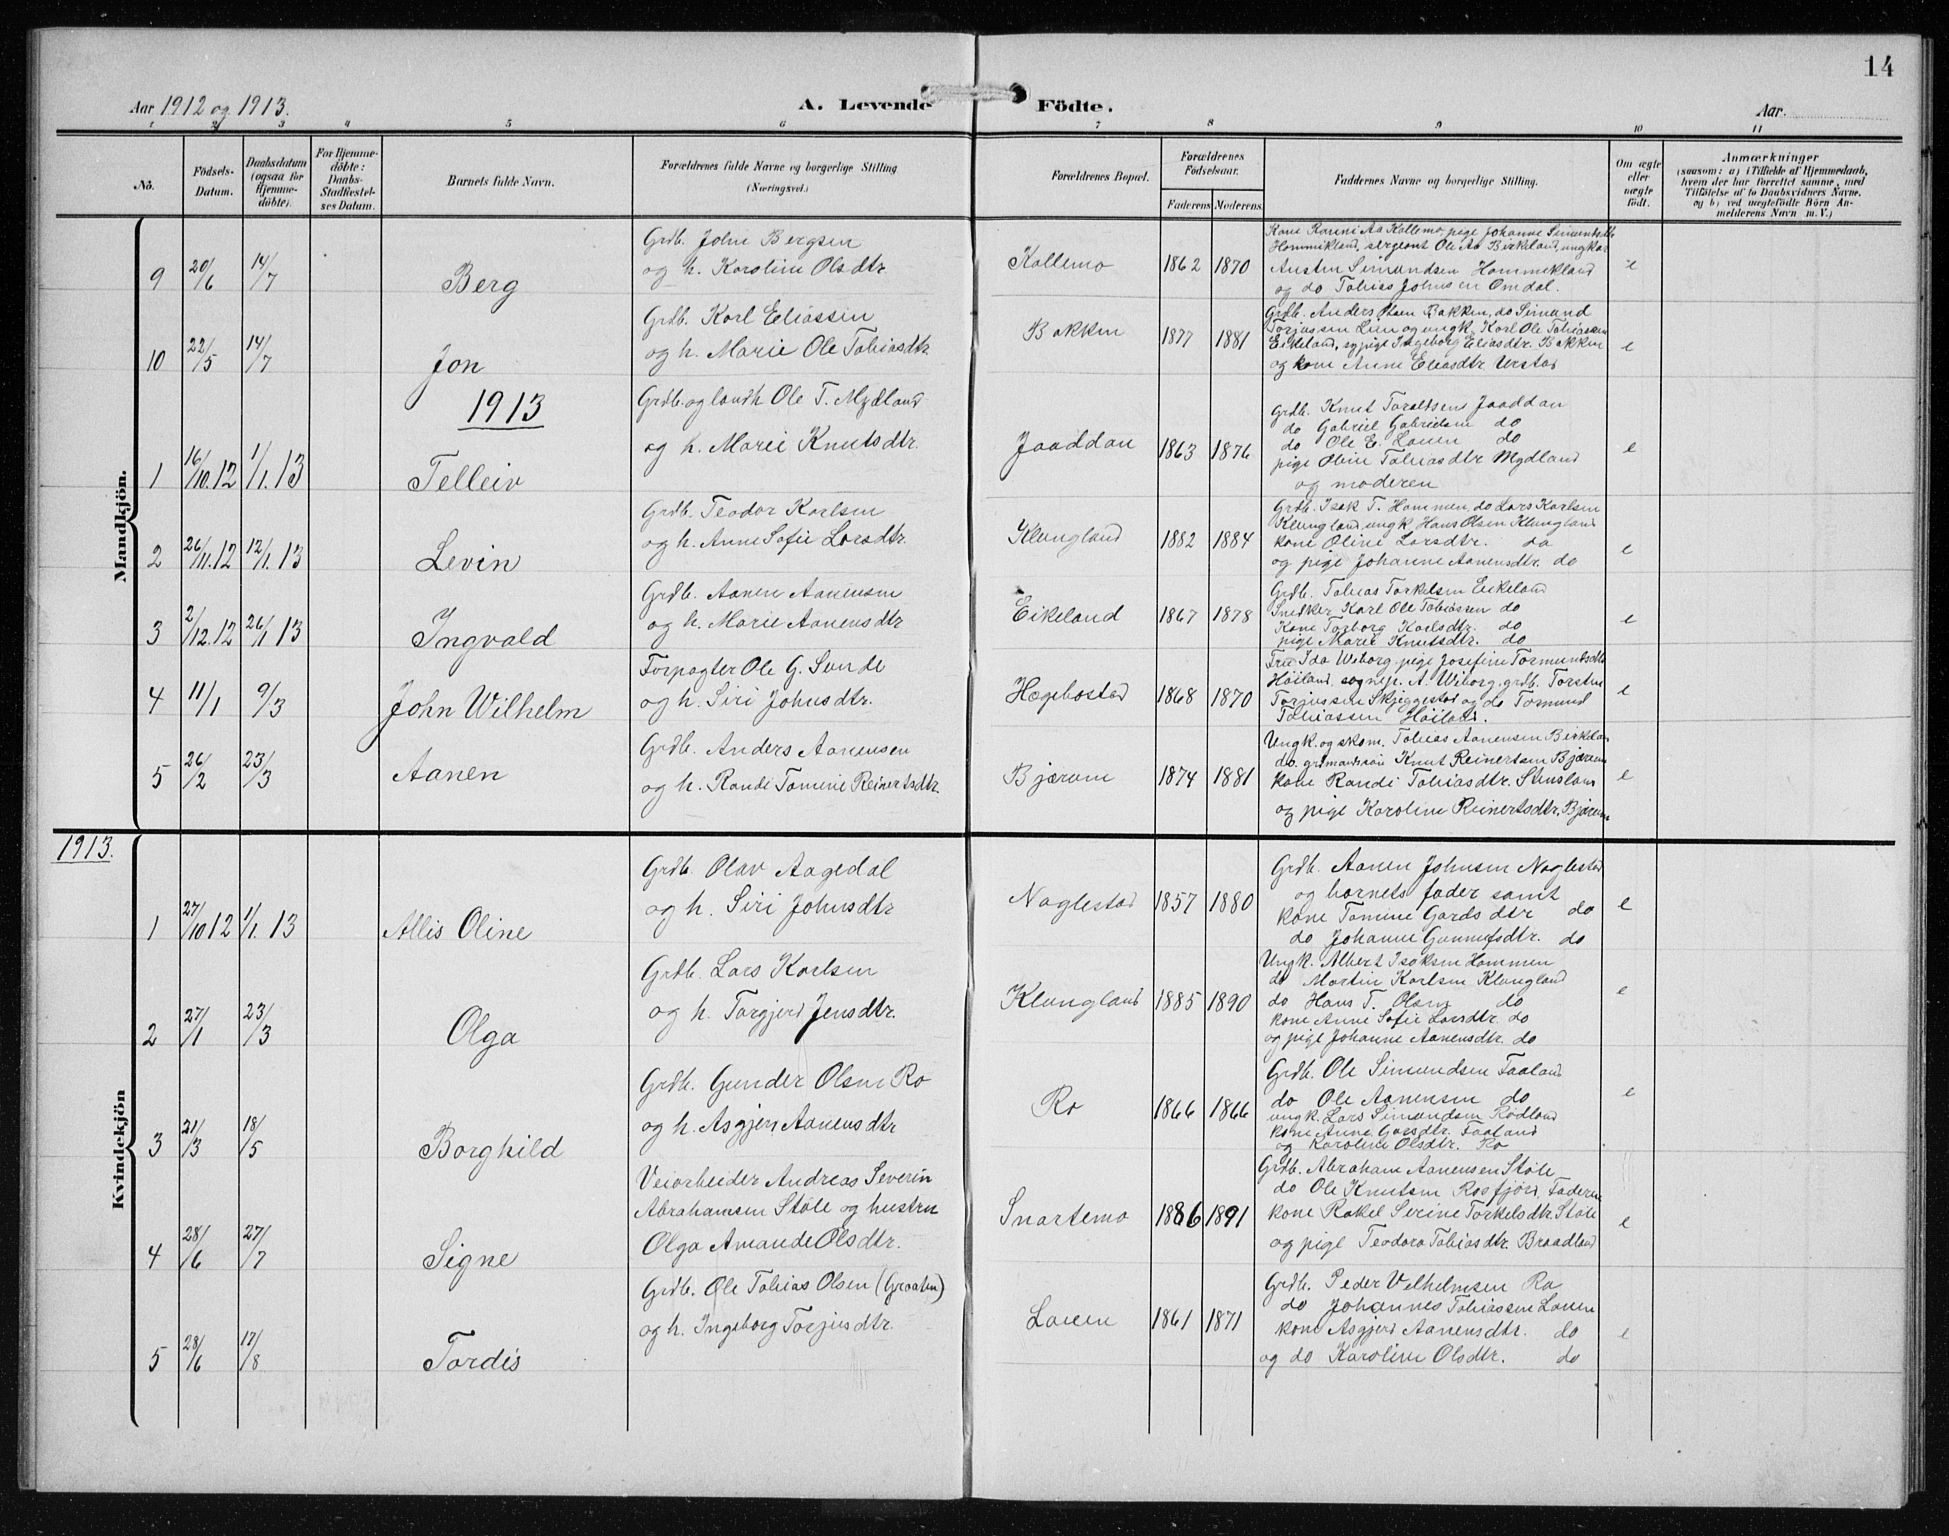 14
Aar 1912 og 1913.
A. Levende Födte.
Aar
1 2 3 4 5 6 7 8 9 10 11
No.
Födsels-Datum.
Daabsdatum (ogsaa for Hjemme-döbte).
For Hjemme-döbte: Daabs-Stadfæstel-ses Datum.
Barnets fulde Navn.
Forældrenes fulde Navne og borgerlige Stilling (Næringsvei.)
Forældrenes Bopæl.
Forældrenes Födselsaar.
Faderens. Moderens.
Faddernes Navne og borgerlige Stilling.
Om ægte eller uægte födt.
Anmærkninger
(saasom: a) i Tilfælde af Hjemmedaab,
hvem der har forrettet samme, med
Tilføielse af to Daabsvidners Navne.
og b) ved uægtefödte Börn An-
melderens Navn m. V.)
Mandkjön.
9 20/6 14/7 Berg
Grdb. John Bergsen
og h. Karoline Olsdtr
Kollemo 1862 1870
Kone Karini Aa Kollemo, pige Johanne Simundsdtr
Hommikland, sergeant Ole Aa Birkeland, ungkar
Austin Simundsen Hommekland
og do Tobias Johnsen Omdal.
e
10 22/5 14/7 Jon
Grdb. Karl Eliassen
og h. Marie Ole Tobiasdtr.
Bakken 1877 1881
Grdb. Anders Olsen Bakken, do Simund
Torjussen Lien og ungk. Karl Ole Tobiassen
Eikeland, sypige Ingeborg Eliasdtr. Bakken
og kone Anne Eliasdtr Urstad
e
1913
1 16/10.12 1/1.13 Telleiv
Grdb. og landh Ole T. Mydland
og h. Marie Knutsdtr.
Jaaddan 1863 1876
Grdb. Knut Taraldsen Jaaddan
do Gabriel Gabrielsen do
do Ole E. Lauen do
pige Oline Tobiasdtr Mydland
og moderen
e
2 26/11.12 12/1.13 Levin
Grdb. Teodor Karlsen
og h. Anne Sofie Larsdtr.
Klungland 1882 1884
Grdb. Isak T. Hommen, do Lars Karlsen
Klungland, ungk. Hans Olsen Klungland
kone Oline Larsdtr. do
og pige Johanne Aanensdtr. do
e
3 2/12.12 26/1 13 Ingvald
Grdb. Aanen Aanensen
og h. Marie Aanensdtr
Eikeland 1867 1878
Grdb. Tobias Torkelsen Eikeland
Snedker Karl Ole Tobiassen do
Kone Torborg Karlsdtr. do
pige Marie Knutsdtr. do
e
4 11/1 9/3 John Wilhelm
Forpagter Ole G. Sunde
og h. Siri Johnsdtr.
Hægebostad 1868 1870
Frue Ida Wiborg, pige Josefine Tormundsdtr
Høiland, sognep. A. Wiborg, grdb. Torsten
Torjussen Skjeggestad og do Tormund
Tobiassen Høiland.
e
5 26/2 23/3 Aanen
Grdb. Anders Aanensen
og h. Rande Tomine Reinertsdtr.
Bjærum 1874 1881
Ungk. og skom. Tobias Aanensen Birkeland
do Knut Reinertsen Bjærum
kone Randi Tobiasdtr.
og pige Karoline Reinertsdtr. Bjærum
e
1913.
Kvindekjön
1 27/10 12 1/1. 13 Allis Oline
Grdb. Olav Aagedal
og h. Siri Johnsdtr
Naglestad 1857 1880
Grdb. Aanen Johnsen Naglestad
og barnets fader samt
kone Tomine Gardsdtr do
do Johanne Gunnufsdtr. do
e
2 27/1 23/3 Olga
Grdb. Lars Karlsen
og h. Torgjerd Jensdtr.
Klungland 1885 1890
Ungk. Albert Isaksen Hommen
do Martin Karlsen Klungland
do Hans T. Olsen do
kone Anne Sofie Larsdtr. do
og pige Johanne Aanensdtr. do
e
3 21/3 18/5 Borghild
Grdb. Gunder Olsen Ro
og h. Asgjerd Aanensdtr
Ro 1866 1866
Grdb. Ole Simundsen Faaland
do Ole Aanensen do
ungk. Lars Simundsen Rødland
kone Anne Garsdtr. Faaland
og Karoline Olsdtr. Ro
e
4 28/6 27/7 Signe
Veiarbeider Andreas Severin
Abrahamsen Støle og hustru
Olga Amande Olsdtr.
Snartemo 1886 1891
Grdb. Abraham Aanensen Støle
do Ole Knutsen Rosfjord, Faderen
kone Rakel Serine Torkelsdtr. Støle
og pige Teodora Tobiasdtr. Braadland
e
5 28/6 17/8 Tordis
Grdb. Ole Tobias Olsen (Graaten)
og h. Ingeborg Torjusdtr.
Lauen 1861 1871
Grdb. Peder Vilhelmsen Ro
do Johannes Tobiassen Lauen
kone Asgjerd Aanensdtr. do
og do Karoline Olsdtr. do
e